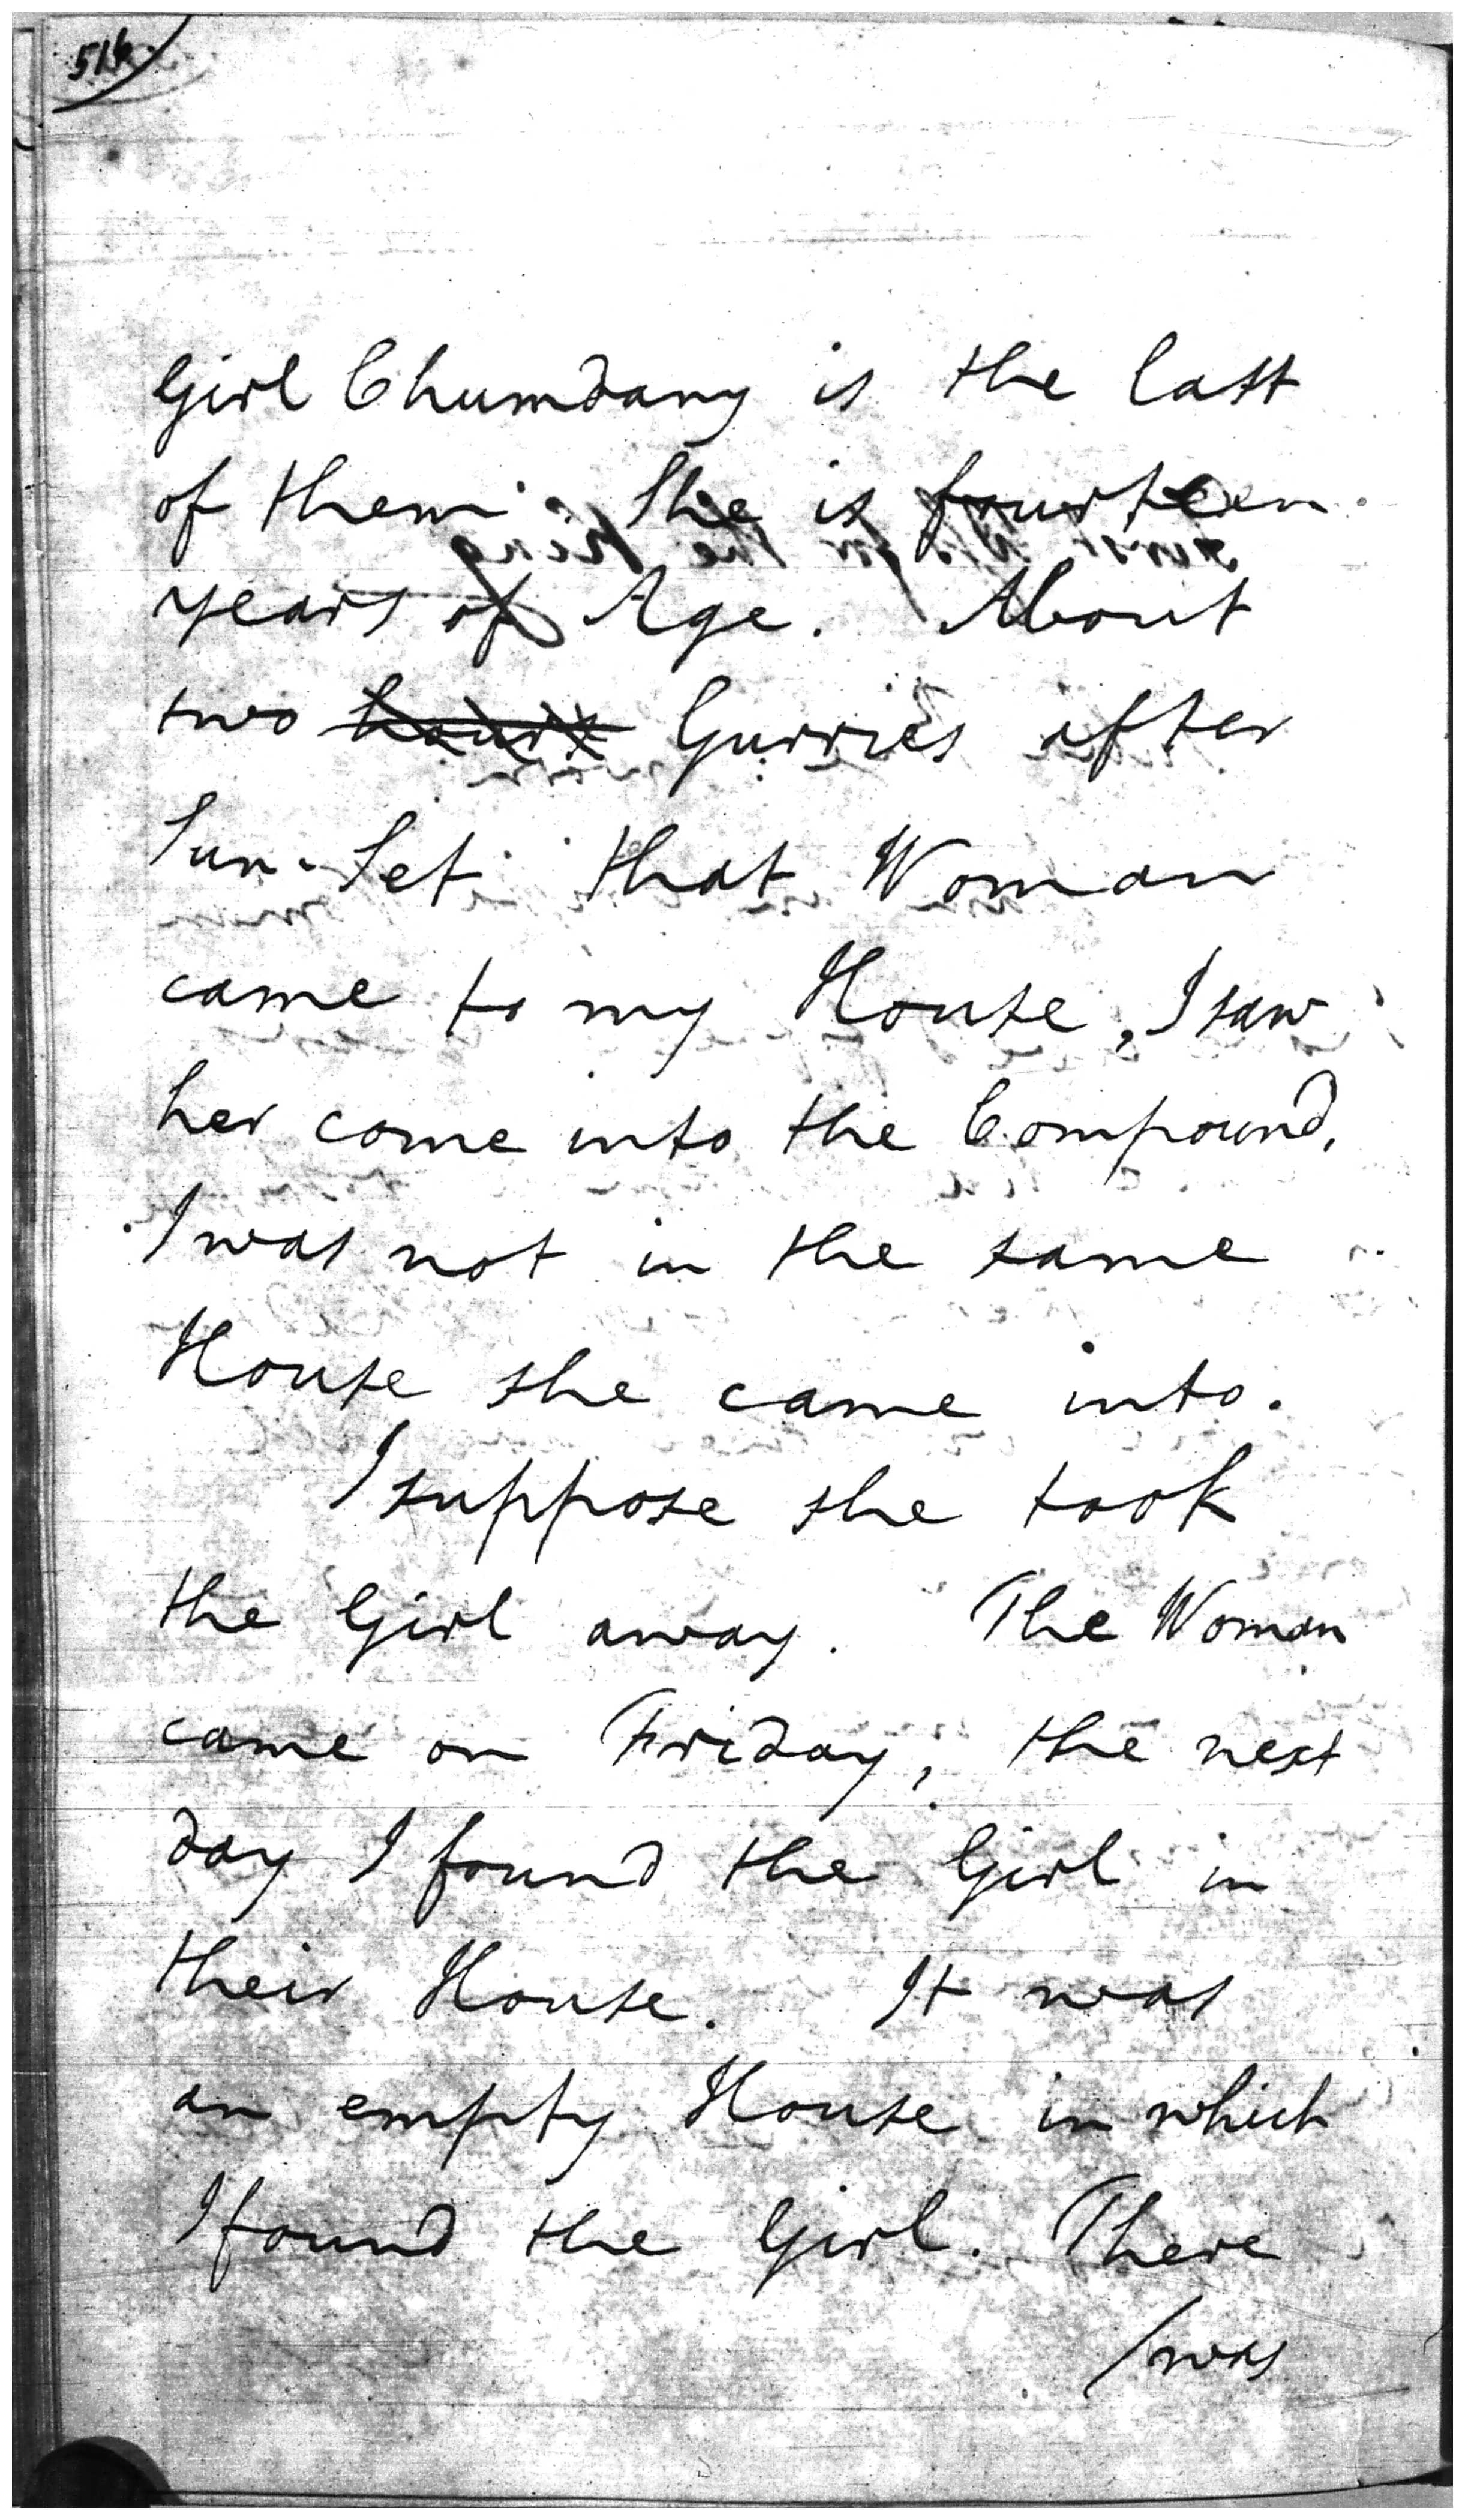 Girl Chumdany is the last
of them. She is fourteen
years of Age. About
two hours Gurries after
Sun-Set that Woman
came to my House, I saw
her come into the Compound,
I was not in the same
House she came into.
I suppose she took
the Girl away. The Woman
came on Friday, the next
day I found the Girl in
their House. It was
an empty House in which
I found the Girl. There
/was